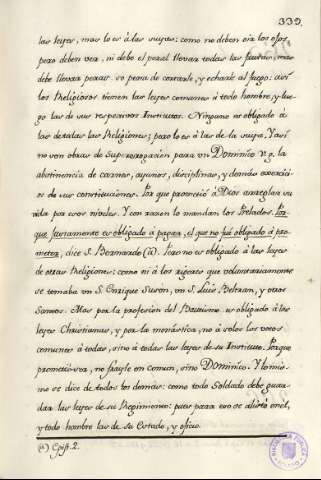 339.
las leyes, mas lo es à las suyas: como no deben oír los ojos,
pero deben ver, ni debe el peral llevar todas las frutas, mas
debe llevar peras so pena de cortarle, y echarle al fuego: así
los Religiosos tienen las leyes comunes à todo hombre, y lue-
go las de sus respectivos Institutos. Ninguno es obligado à
las de todas las Religiones; pero lo es à las de la suya. Y así
no son obras de Supererogacion para un Dominico v.g. la
abstinencia de carnes, ayunos, disciplinas, y demás exercici-
os de sus constituciones. Porque prometió à Dios arreglar su
vida por esos niveles. Y con razon lo mandan los Prelados. Por-
que justamente es obligado à pagar, el que no fué obligado à pro-
meter, dice S. Bernardo (a). Pero no es obligado à las leyes
de otras Religiones: como ni à los rigores que voluntariamente
se tomaba un S. Enrique Susón, un S. Luis Beltran, y otros
Santos. Mas por la profesion del Bautismo es obligado à las
leyes Christianas, y por la monástica, no à solos los votos
comunes à todas, sino à todas las leyes de su Instituto. Porque
prometió ser, no frayle en comun, sino Dominico. Y lo mis-
mo se dice de todos los demás: como todo Soldado debe guar-
dar las leyes de su Regimiento: pues para eso se alistó en el,
y todo hombre las de su Estado, y oficio.
(a) Epist. 2.